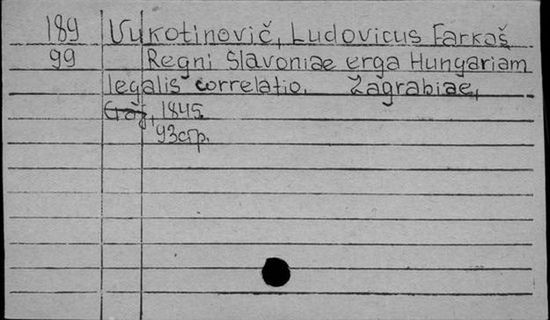 189 Vukotinovič, Ludovicus Farkaš
99 Regni Slavoniae erga Hungariam
legalis correlatio. Zagrabiae,
Gaj, 1845.
93стр.